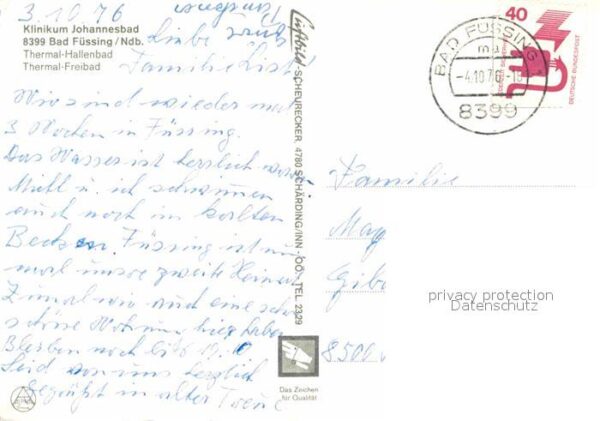 3.10.76
Klinikum Johannesbad
8399 Bad Füssing/Ndb.
Thermal-Hallenbad
Thermal-Freibad
Liebe
Familie List!
Wir sind wieder mal
3 Wochen in Füssing.
Das Wasser ist herrlich warm
u. ich schwimmen
auch noch im kalten
Becken. Füssing ist nun
mal unsre zweite Heimat
Zumal wir auch eine sehr
schöne Wohnung hier haben
Bleiben noch bis
Seid von uns herzlich
Gegrüßt in alter Treue
Luftbild SCHEURECKER, 4780 SCHÄRDING/INN - OÖ, TEL 2329
Das Zeichen
für Qualität
40
DEUTSCHE BUNDESPOST
BAD FÜSSING
-4.10.76-18
8399
Familie
May
privacy protection
Datenschutz
8500